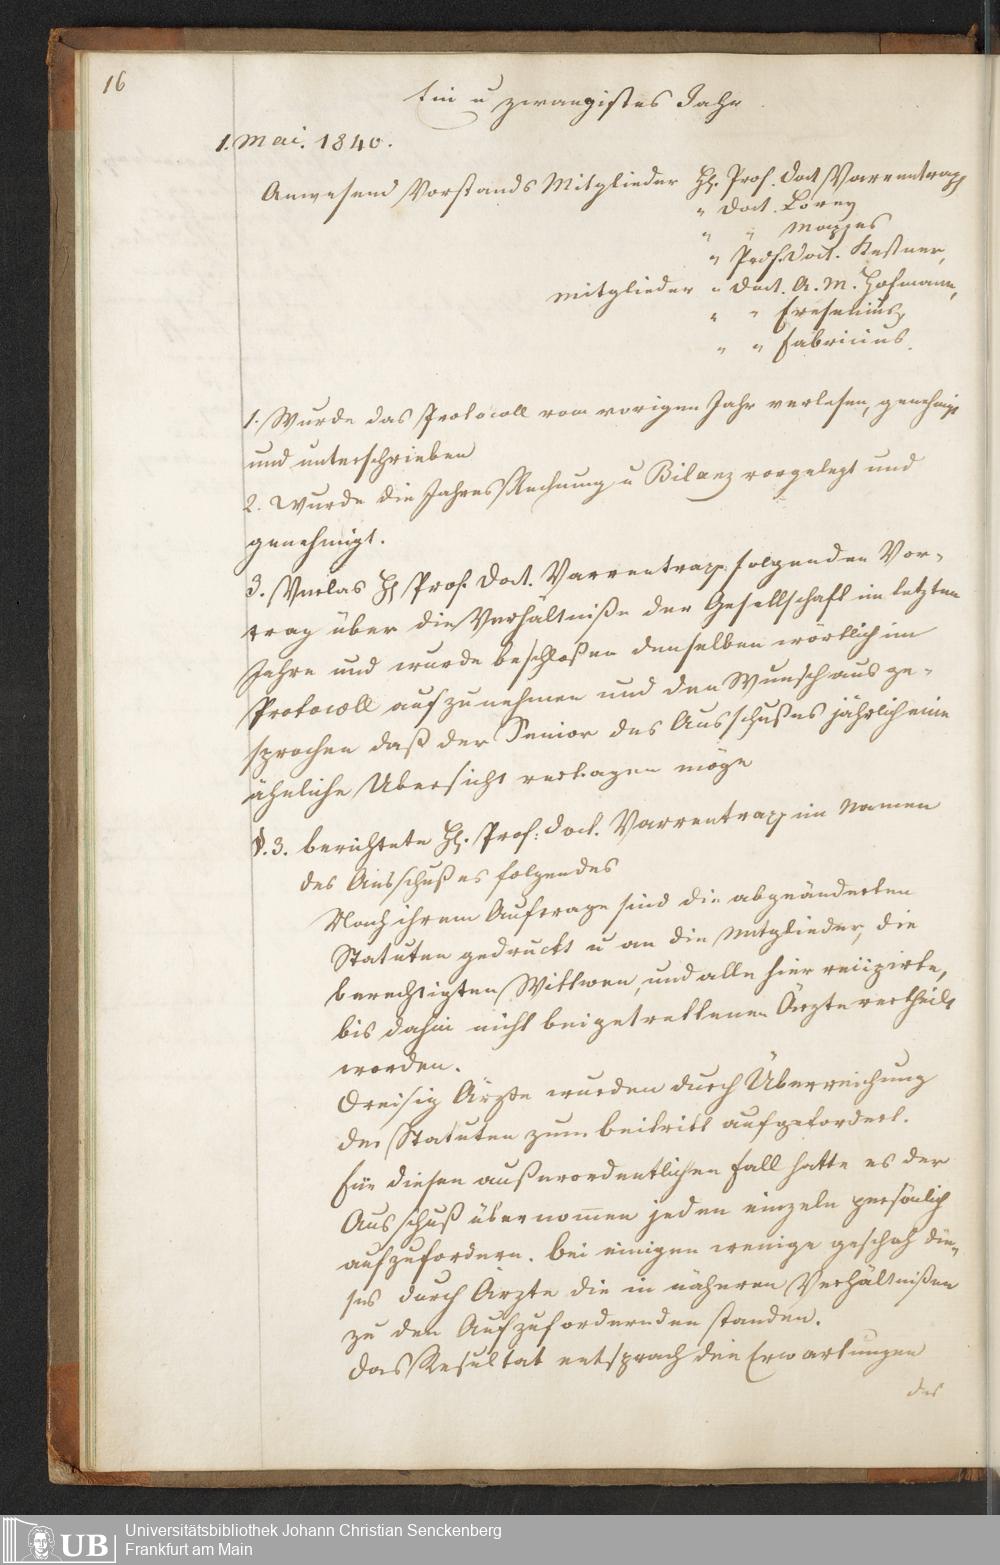 16
Ein u zwanzigstes Jahr
1. Mai. 1840.
Anwesend Vorstands Mitglieder H. Prof. Doct Varrentrapp
" Doct. Lorey
" " Mappes
" Prof. Doct. Kestner,
Mitglieder " Doct. A. M. Hofmann,
" " Fresenius,
" " Fabricius.
1. Wurde das Protocoll vom vorigen Jahr verlesen, genehmigt
und unterschrieben
2. Wurde die Jahres Rechnung u Bilanz vorgelegt und
genehmigt.
3. Verlas H Prof. Doct. Varrentrapp folgenden Vor-
trag über die Verhältniße der Gesellschaft im letzten
Jahre und wurde beschloßen denselben wörtlich im
Protocoll aufzunehmen und den Wunsch aus ge-
sprochen daß der Senior des Ausschußes jährlich eine
ähnliche Übersicht vortragen möge
§. 3. berichtete H. Prof: Doct. Varrentrapp im Namen
des Ausschußes folgendes
Nach ihrem Auftrage sind die abgeänderten
Statuten gedruckt u an die Mitglieder, die
berechtigten Wittwen, und alle hier recipirte,
bis dahin nicht beigetrettenen Ärzte vertheilt
worden.
Dreisig Ärzte wurden durch Überreichung
der Statuten zum beitritt aufgefordert.
für diesen außerordentlichen fall hatte es der
Ausschuß übernommen jeden einzeln persönlich
aufzufordern. bei einigen wenige geschah die-
ses durch Ärzte die in näheren Verhältnißen
zu den Aufzufordernden standen.
das Resultat entsprach den Erwartungen
des
Universitätsbibliothek Johann Christian Senckenberg
UB
Frankfurt am Main